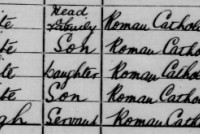 Head
te Family Roman Catho
te Son Roman Catho
te Daughter Roman Catho
te Son Roman Catho
gh Servant Roman Catho